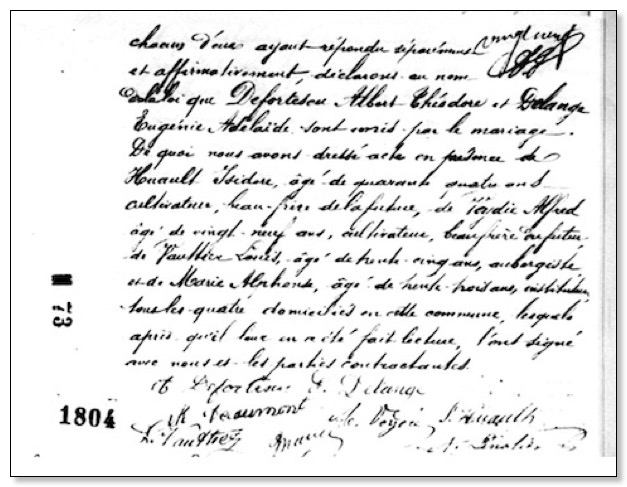 chacun d'eux ayant répondu séparément
vingt neuf
et affirmativement, déclarons au nom
de la loi que Defortescu Albert Théodore et Delange
Eugénie Adélaïde sont unis par le mariage.
De quoi nous avons dressé acte en présence de
Huault Isidore, âgé de quarante quatre ans
cultivateur, beau-frère de la future, de Alfred
âgé de vingt neuf ans, cultivateur, beau frère du futur,
de Vauthier Louis, âgé de trente cinq ans, aubergiste
et de Marie Alphonse, âgé de trente trois ans, instituteur,
tous les quatre domiciliés en cette commune, lesquels
après qu'il leur en a été fait lecture, l'ont signé
avec nous et les parties contractantes.
At Defortescu E. Delange
73
1804
I. Huault
L. Vauthier